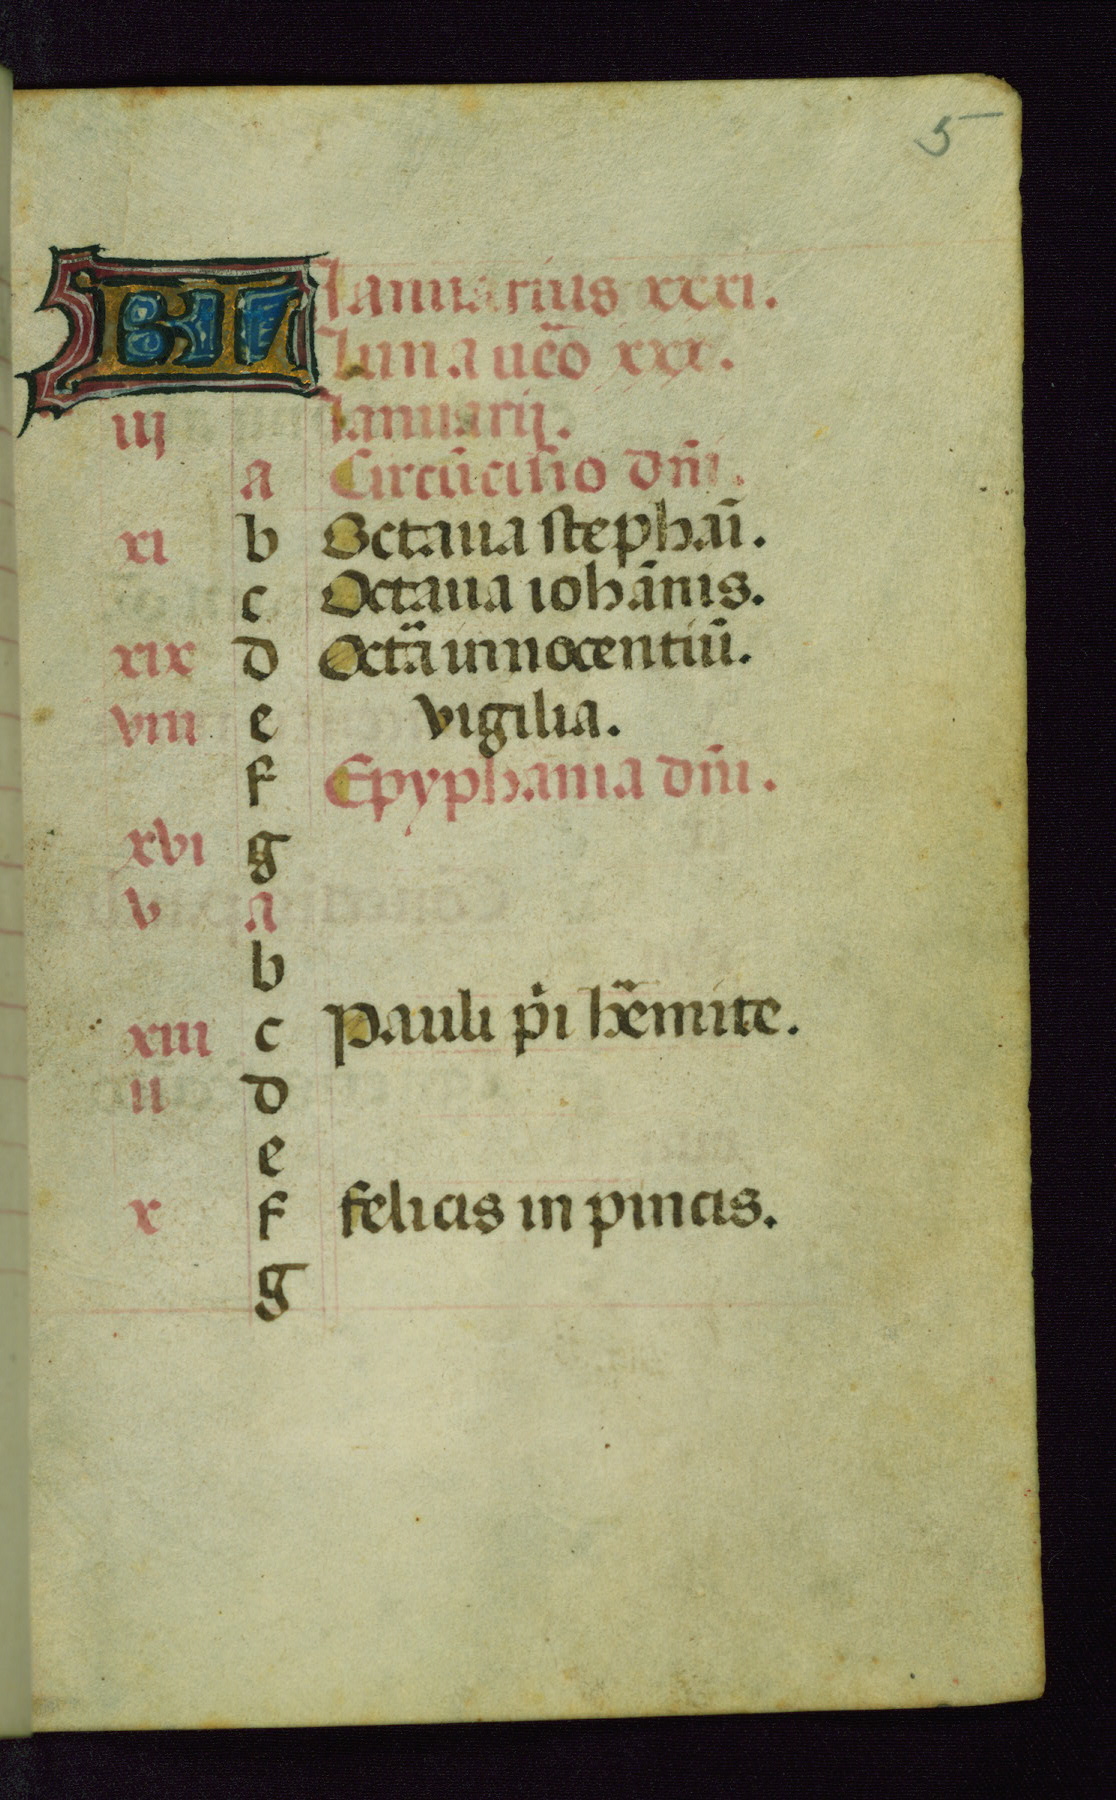 5
KL Ianuarius xxxi.
Luna uēo xxx.
iij Ianuarij.
a Circūcisio dn̄i.
xi b Octaua stephāi.
c Octaua iohānis.
xix d Octā innocentiū.
viii e vigilia.
f Epyphania dn̄i.
xvi g
v a
b
xiii c Pauli pi hēmite.
ii d
e
x f felicis in pincis.
g